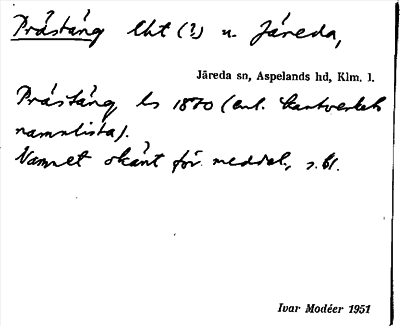 Prästäng lht (?) u. Järeda,
Järeda sn, Aspelands hd, Klm. l.
Prästäng ls 1870 (enl. kartverkets
namnlista).
Namnet okänt för meddel., s. bl.
Ivar Modéer 1951